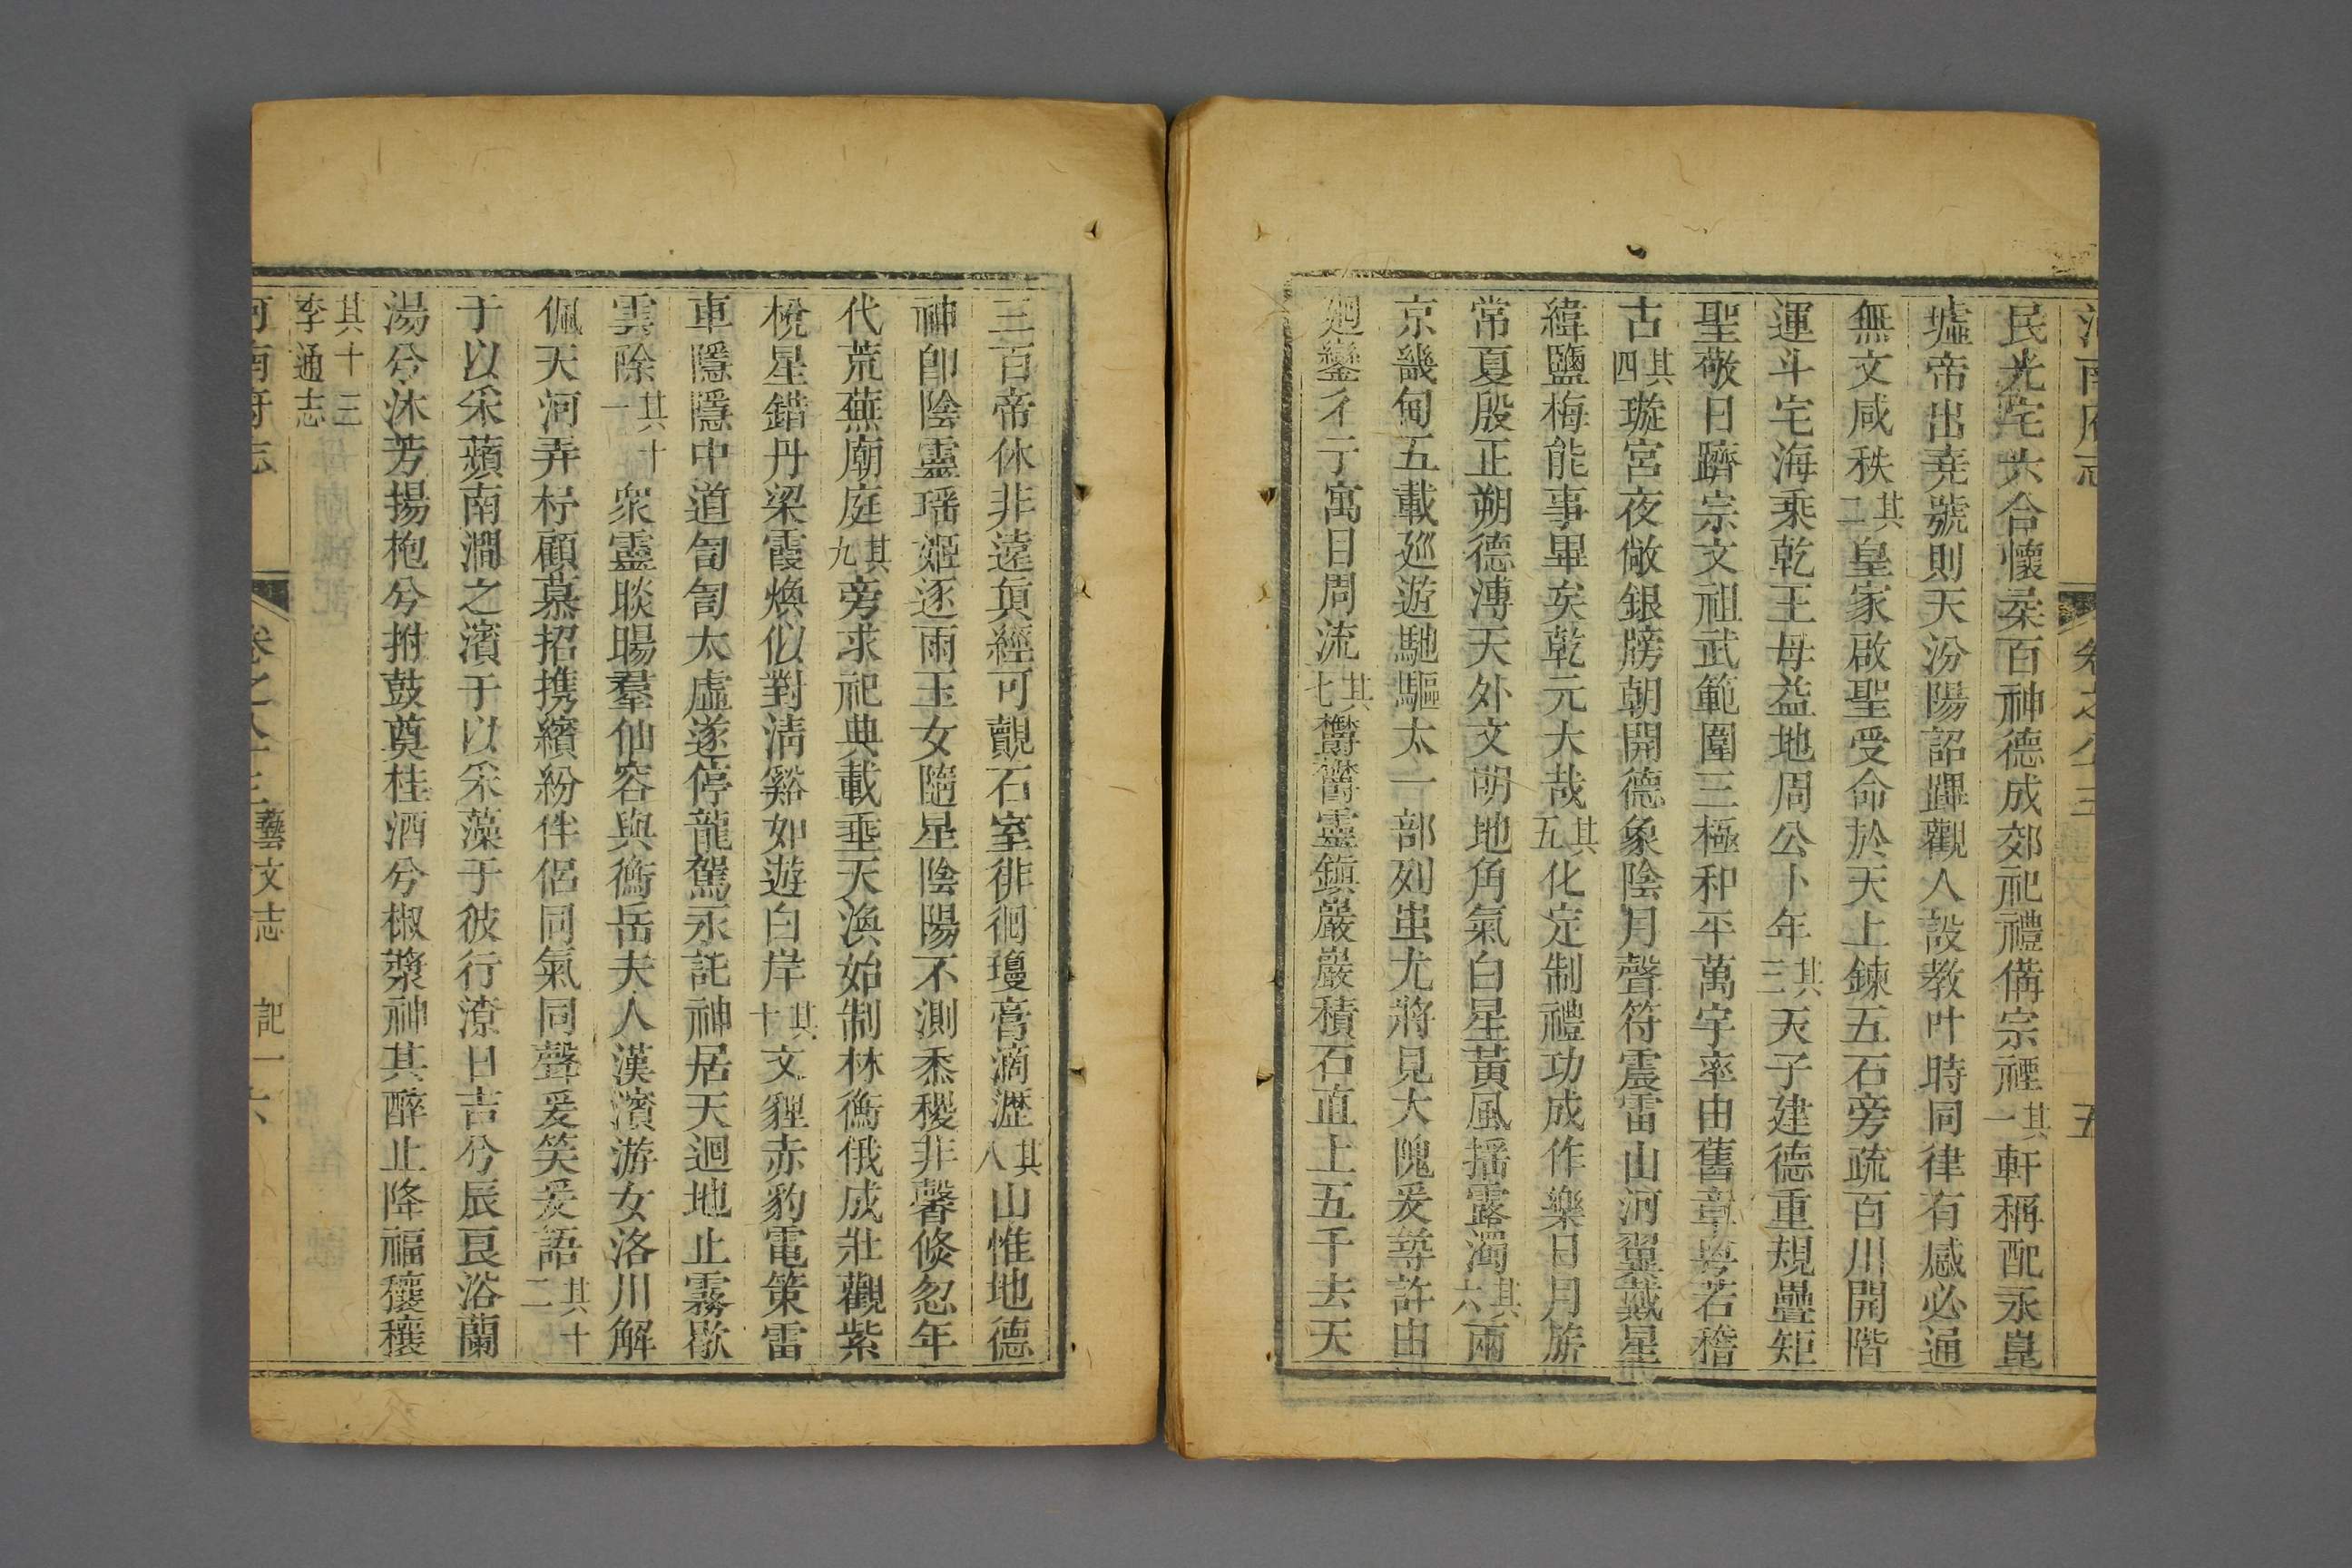 河南府志 卷之八十三 藝文志 記一 五
民光宅六合懷柔百神德成郊祀禮備宗禋其一軒稱配永崑
墟帝出堯號則天汾陽詔蹕觀人設教叶時同律有感必通
無文咸秩其二皇家啟聖受命於天上鍊五石旁疏百川開階
運斗宅海乘乾王母益地周公卜年其三天子建德重規疊矩
聖敬日躋宗文祖武範圍三極和平萬宇率由舊章粵若稽
古其四璇宮夜敞銀牓朝開德象陰月聲符震雷山河翼戴星
緯鹽梅能事畢矣乾元大哉其五化定制禮功成作樂日月旂
常夏殷正朔德溥天外文明地角氣白星黃風搖露濁其六兩
京畿甸五載巡遊馳驅太一部列蚩尤將見大隗爰筭許由
廻鑾亻亍寓目周流其七欝欝靈鎮巖巖積石直上五千去天
三百帝休非遠貞經可覿石室徘徊瓊膏滴瀝其八山惟地德
神卽陰靈瑶姬逐雨玉女隨星陰陽不測黍稷非馨倐忽年
代荒蕪廟庭其九旁求祀典載垂天渙始制林衡俄成壯觀紫
梲星錯丹梁霞煥似對淸谿如遊白岸其十文貍赤豹電策雷
車隱隱中道訇訇太虛遂停龍駕永託神居天迴地止霧歇
雲除其十一衆靈睒暘羣仙容與衡岳夫人漢濱游女洛川解
佩天河弄杼顧慕招携繽紛伴侶同氣同聲爰笑爰語其十二
于以采蘋南澗之濱于以采藻于彼行潦日吉兮辰良浴蘭
湯兮沐芳揚枹兮拊鼓奠桂酒兮椒漿神其醉止降福穰穰
其十三
李通志
河南府志 卷之八十三 藝文志 記一 六